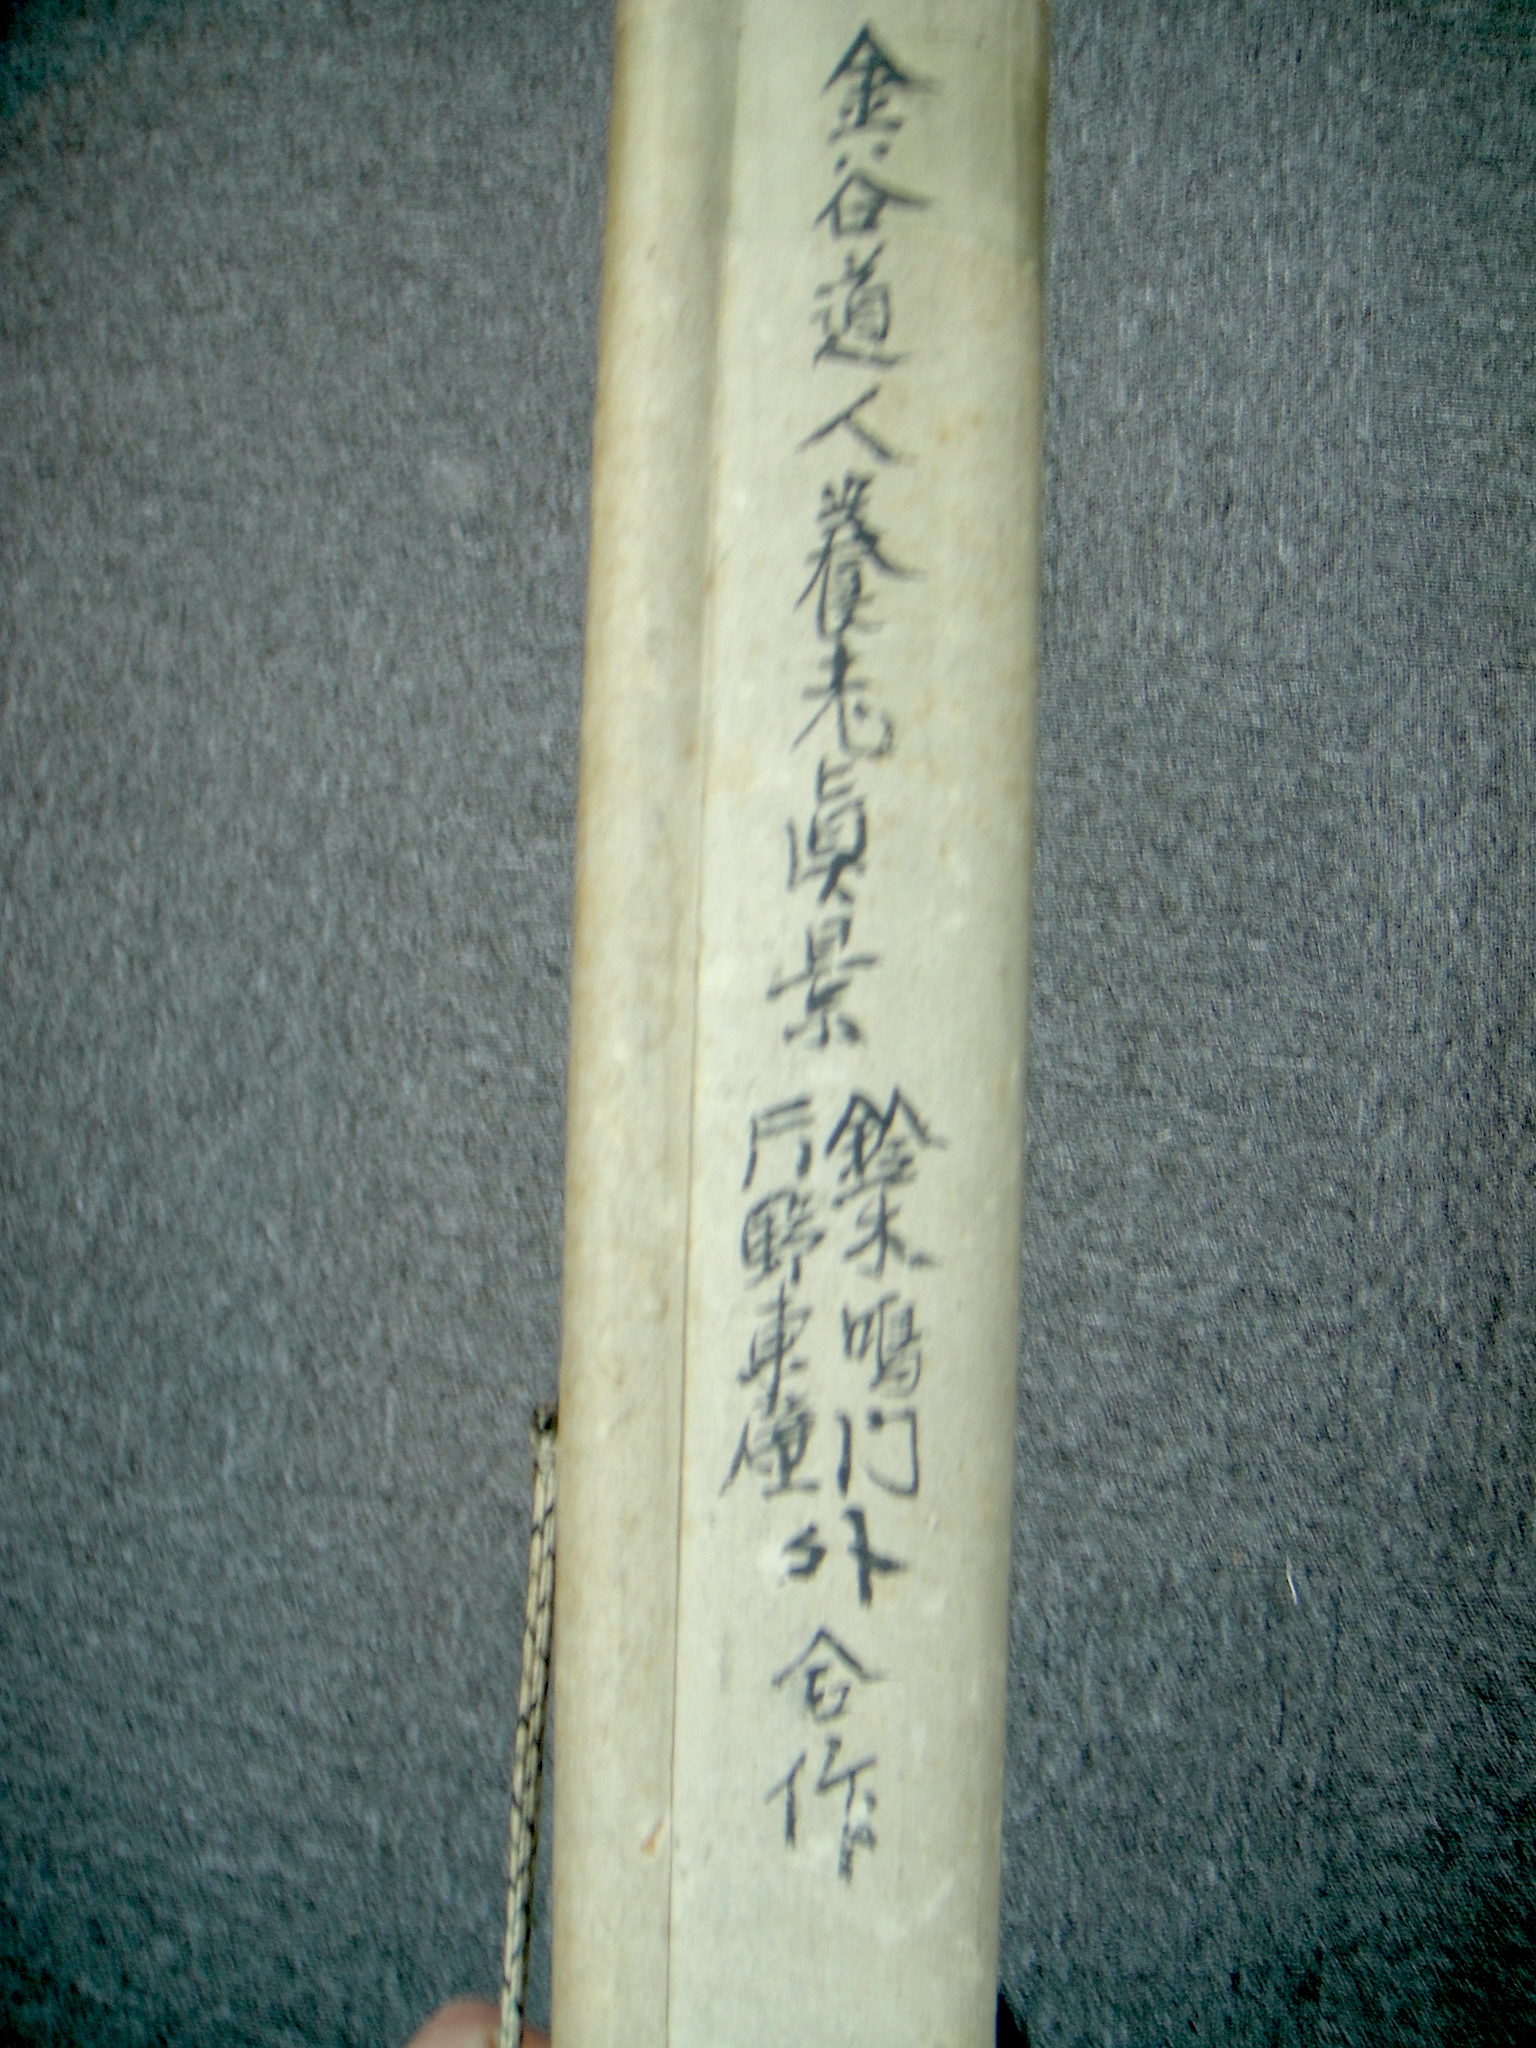 金谷道人養老眞景
鈴木鳴門
片野東
外合作